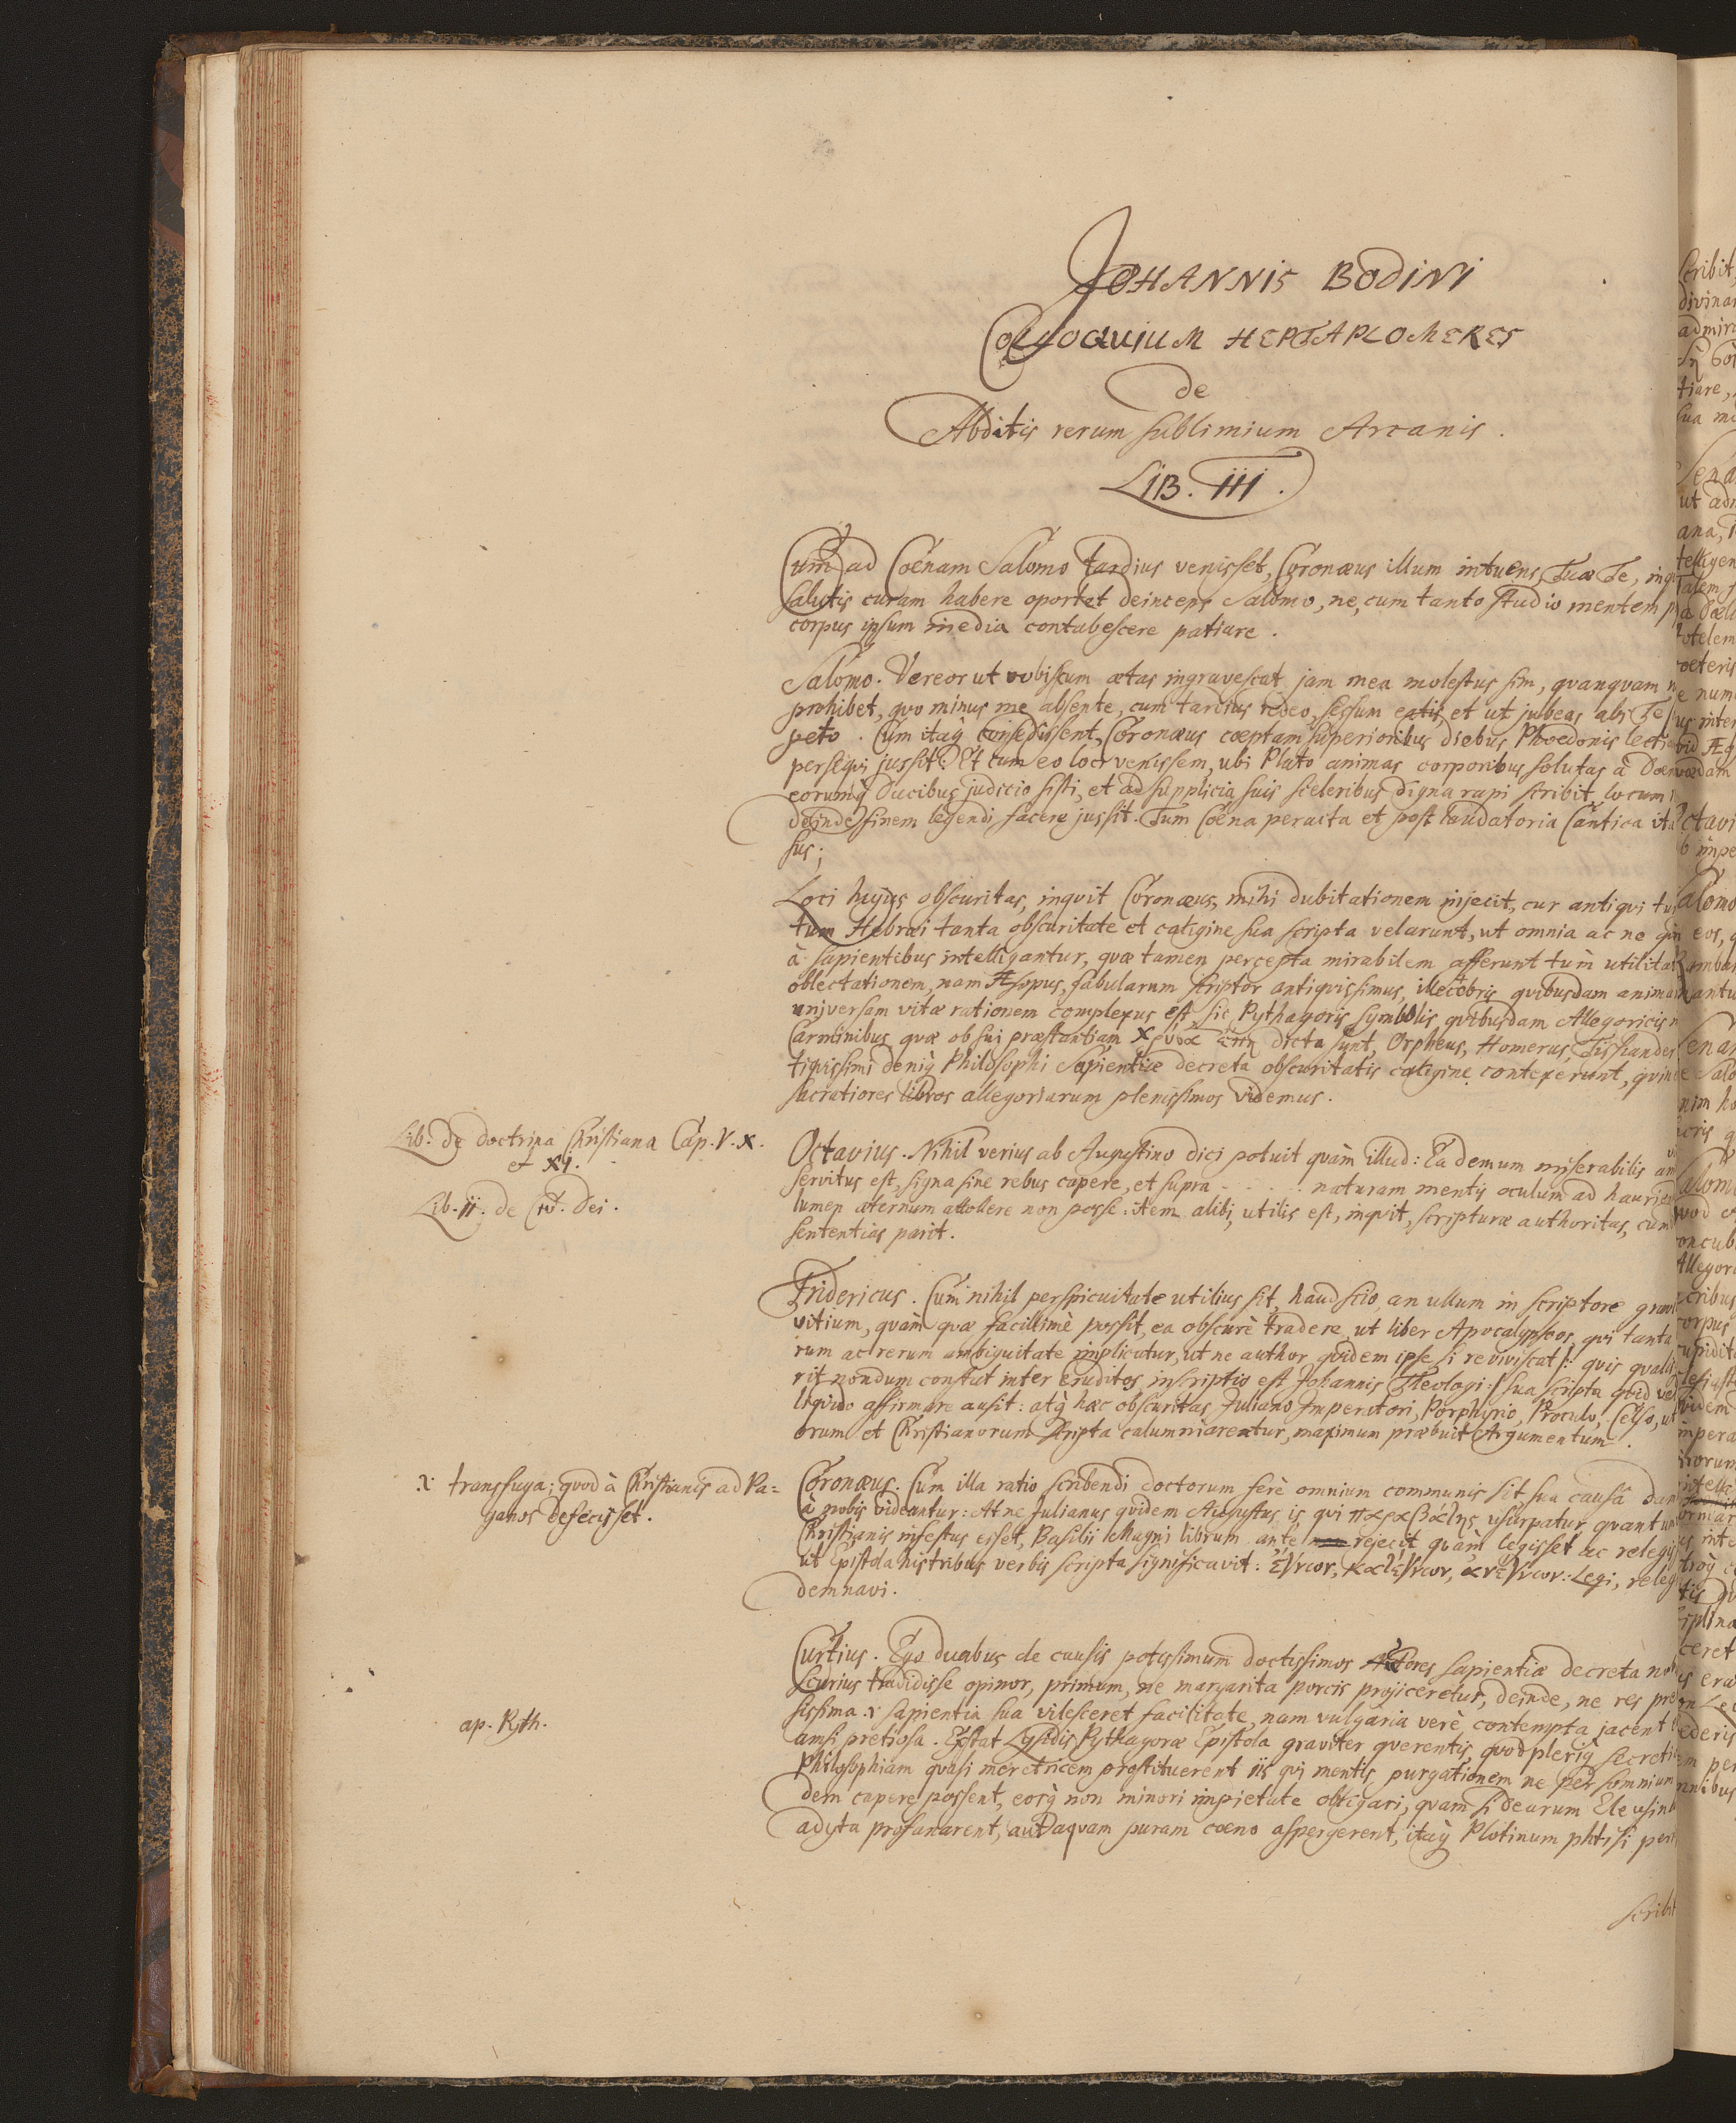 JOHANNIS BODINI
COLLOQUIUM HEPTAPLOMERES
de
Abditis rerum sublimium Arcanis.
LIB. III.
Cum ad Coenam Salomo tardius venisset, Coronæus illum intuens, Tuæ Te, inq
salutis curam habere oportet deinceps Salomo, ne, cum tanto studio mentem p
corpus ipsum inedia contabescere patiare.
Salomo. Vereor ut vobiscum ætas ingravescat jam mea molestus sim, quanquam n
prohibet, quo minus me absente, cum tardius redeo, sessum eatis, et ut jubeas abs Te
peto. Cum itaq̄ consedissent, Coronæus cœptam superioribus diebus Phœdonis lectio
persequi jussit: Et cum eo loci venissem, ubi Plato animas corporibus solutas à Dæm
eorumq̄ Ducibus judicio sisti, et ad supplicia suis sceleribus digna rapi scribit, locum
deinde finem legendi facere jussit. Tum Coena peracta et post laudatoria Cantica ita
sus;
Loci hujus obscuritas, inquit Coronæus, mihi dubitationem injecit, cur antiqui tu
tum Hebræi tanta obscuritate et caligine sua scripta velarunt, ut omnia ac ne qui
à sapientibus intelligantur, quæ tamen percepta mirabilem afferunt tum utilitat
oblectationem, nam Æsopus, fabularum scriptor antiquissimus, illecebris quibusdam anima
universam vitæ rationem complexus est, sic Pythagoris symbolis quibusdam Allegoricis
Carminibus, quæ ob sui præstantiam χρυσα επη dicta sunt, Orpheus, Homerus, Tissandes
tiquissimi deniq̄ Philosophi Sapientiæ decreta obscuritatis caligine contexerunt, quin
sacratiores libros allegoriarum plenissimos videmus.
Lib. de doctrina Christiana Cap. V. X.
et XI.
Lib. II. de Civ. Dei.
Octavius. Nihil verius ab Augustino dici potuit quàm illud: Ea demum miserabilis an
servitus est, signa sine rebus capere, et supra - - - - naturam mentis oculum ad haurie
lumen æternum attollere non posse: item alibi, utilis est, inquit, scripturæ authoritas, cum
sententias parit.
Fridericus. Cum nihil perspicuitate utilius sit, haud scio, an ullum in scriptore gravi
vitium, quàm quæ facillimè possit, ea obscurè tradere, ut liber Apocalypseos, qui tanta
rum ac rerum ambiguitate implicatur, ut ne author quidem ipse si reviviscat /: quis quali
rit nondum constat inter eruditos, inscriptio est Johannis Theologi :/ sua scripta quid ve
liquido affirmare ausit: atq̄ hæc obscuritas Juliano Imperatori, Porphyrio, Proculo, Celso, ut
orum et Christianorum scripta calumniarentur, maximum præbuit Argumentum.
x transfuga; quod à Christianis ad Pa=
ganos defecisset.
Coronæus. Cum illa ratio scribendi doctorum ferè omnium communis sit sua causâ dam
à nobis videantur: At ne Julianus quidem Augustus, is qui παραβάτης usurpatur, quantum
Christianis infestus esset, Basilii Magni librum ante rejecit quàm legisset ac relegis
ut Epistola his tribus verbis scripta significavit: Legi, releg
demnavi.
Curtius. Ego duabus de causis potissimum doctissimos Autores sapientiæ decreta no
scurius tradidisse opinor, primùm, ne margarita porcis projiceretur, deinde, ne res pre
sissima sapientia sua vilesceret facilitate, nam vulgaria verè contempta jacent
amsi pretiosa. Exstat Lysidis Pythagoræ Epistola graviter querentis, quod pleriq̄ secreti
ap. Pyth.
Philosophiam quasi meretricem prostituerent iis qui mentis purgationem ne per somnium
dem capere possent, eosq̄ non minori impietate obligari, quam si dearum Eleusin
adyta profanarent, aut aquam puram coeno aspergerent, itaq̄ Plotinum phtisi per
scribit